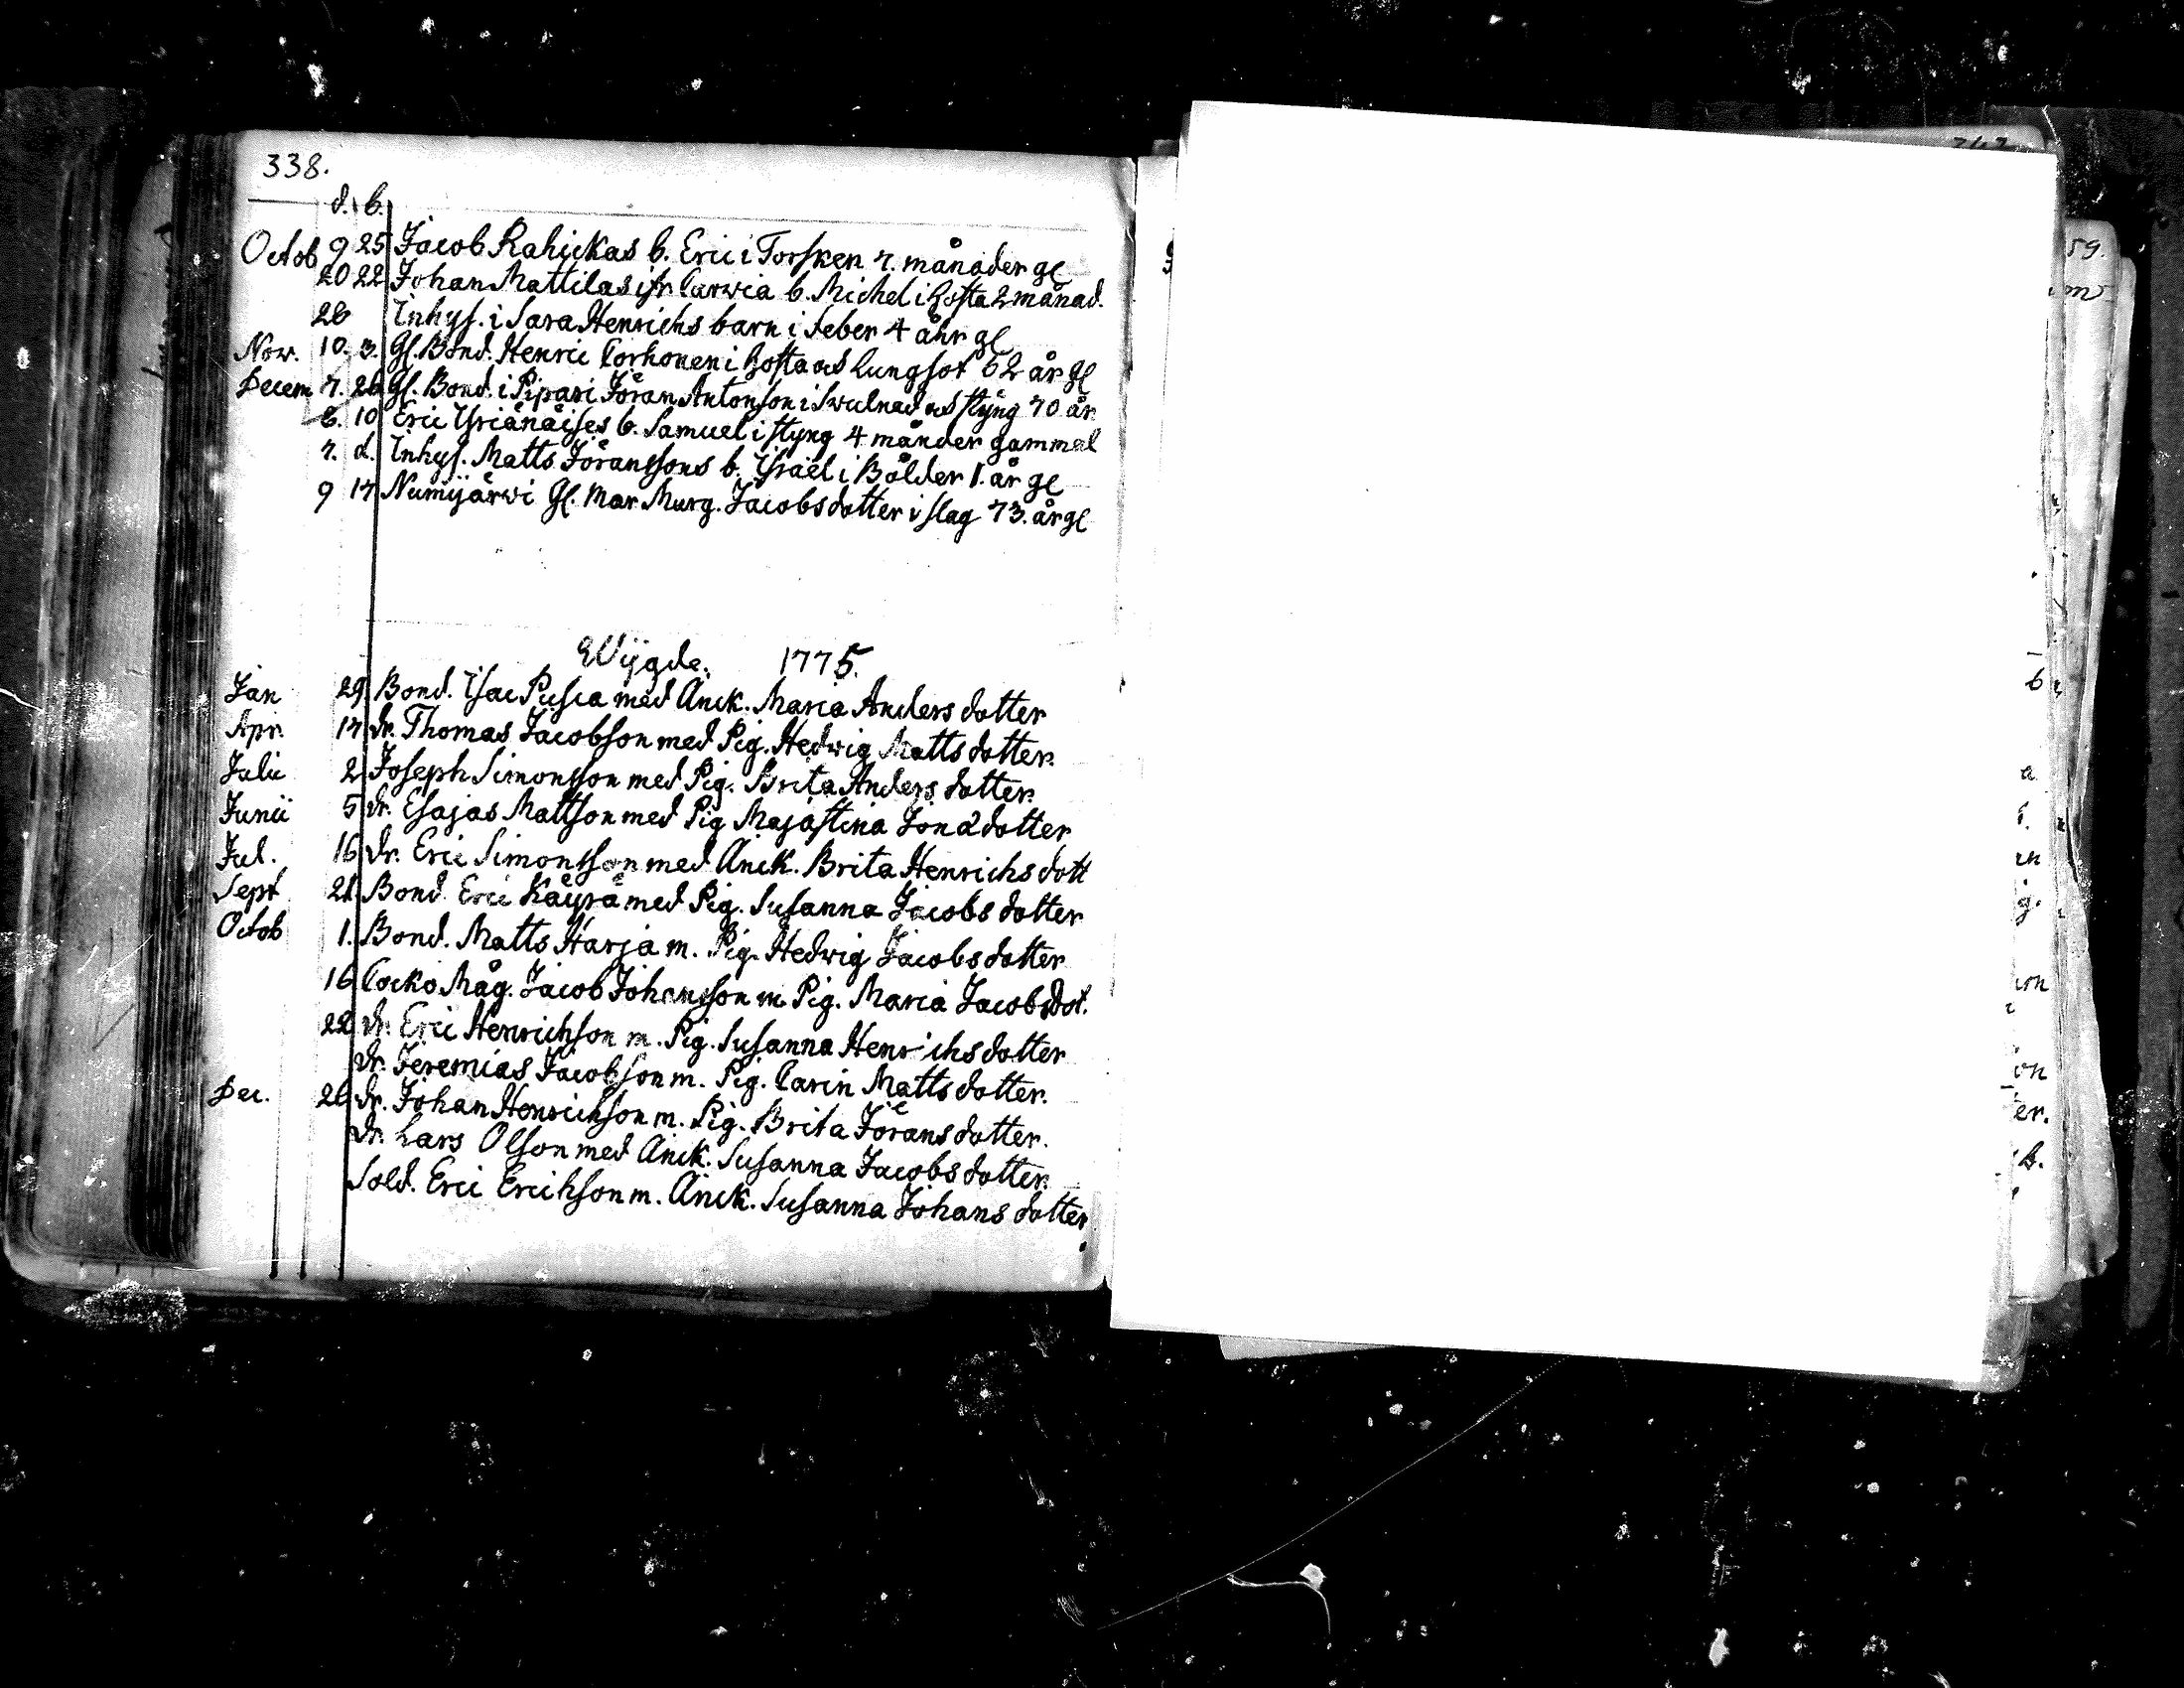 338.
d. b.
Octob 9 25 Jacob Rahickas b. Eric i Torsken 7. månader gl
20 22 Johan Mattilas ifr Carwia b. Michel i Hosta 2 månad.
26 Inhys. i Sara Henrichs barn i feber 4 åhr gl
Nov. 10. 3. Gl. Bond. Henric Corhonen i Hosta och Lungsot 62 år gl
Decem 7. 26 Gl. Bond. i Pipari Jöran Antonson i Swulnad och styng 70 år
6. 10 Eric Yriänäises b. Samuel i styng 4 månder gammal
7. d. Inhys. Matts Joranssons b. Israel i Bålder 1. år gl
9 17 Numijärwi Gl. Mor Marg. Jacobsdotter i slag 73. år gl
Wijgde. 1775.
Jan 29. Bond. Isac Pusca med Änck. Maria Andersdotter
Apr. 17 dr. Thomas Jacobson med Pig. Hedwig Mattsdotter.
Julii 2 Joseph Simonsson med Pig. Brita Andersdotter.
Junii 5 dr. Esajas Mattson med Pig Majastina Jonædotter
Jul. 16 dr. Eric Simonsson med Änck. Brita Henrichsdott
Sept 21 Bond. Eric Käyrä med Pig. Susanna Jacobsdotter
Octob 1. Bond. Matts Harja m. Pig. Hedwig Jacobsdotter
16 Cocko Måg. Jacob Johansson m. Pig. Maria Jacobsdot.
22 dr. Eric Henrichson m. Pig. Susanna Henrichsdotter
dr. Jeremias Jacobson m. Pig. Carin Mattsdotter.
Dec. 26 dr. Johan Henrichson m. Pig. Brita Joransdotter.
dr. Lars Olsson med Änck. Susanna Jacobsdotter.
Sold. Eric Erichson m. Änck. Susanna Johansdotter
59.